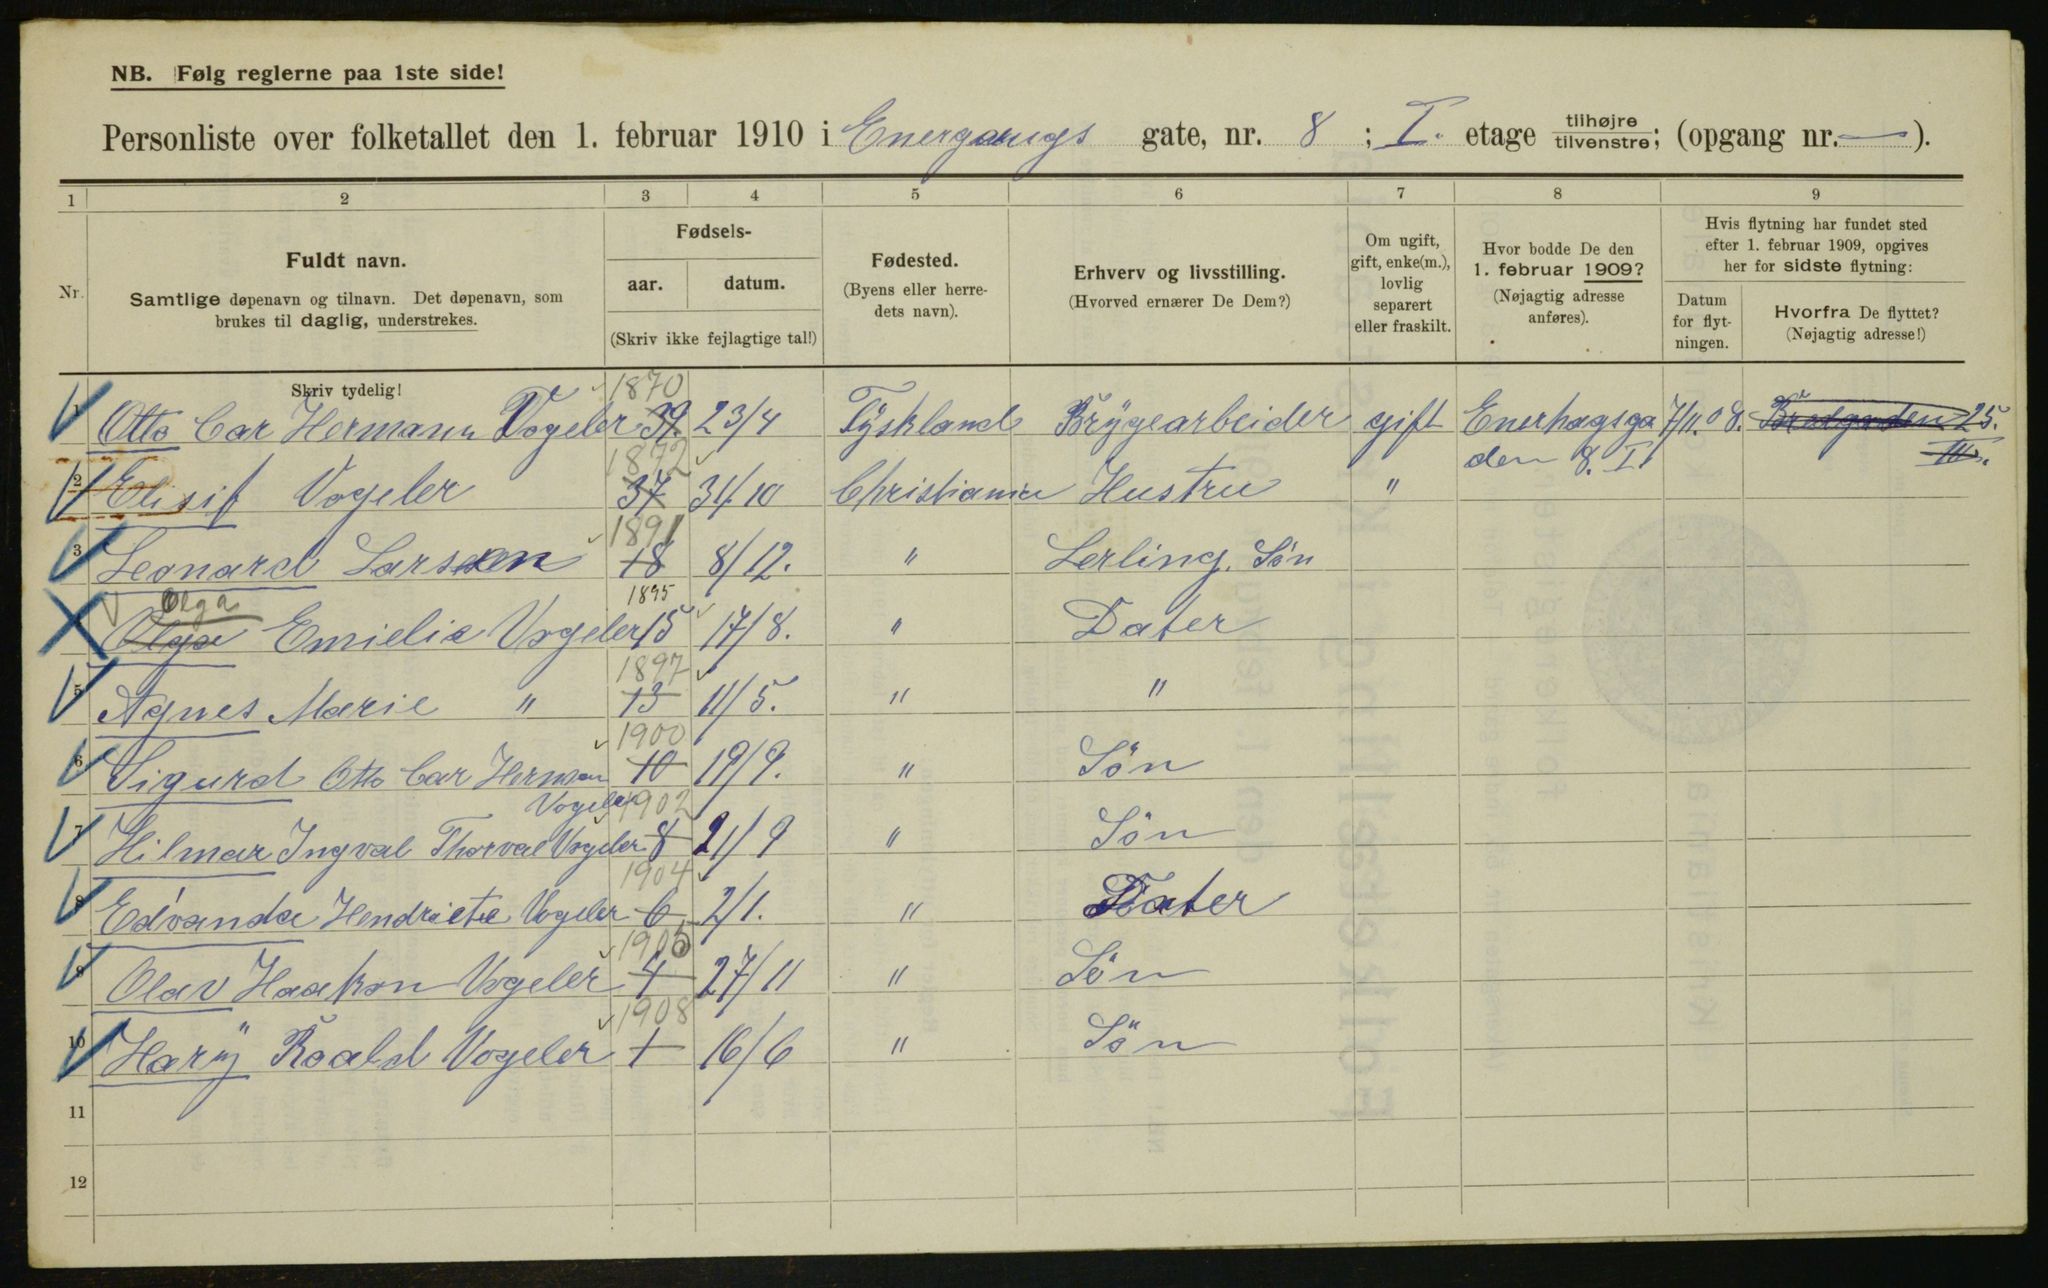 NB. Følg reglerne paa 1ste side!
Personliste over folketallet den 1. februar 1910 i Energaugs gate, nr. 8 ; I. etage tilhøjre tilvenstre; (opgang nr. — ).
1 2 3 4 5 6 7 8 9
Nr.
Fuldt navn.
Samtlige døpenavn og tilnavn. Det døpenavn, som
brukes til daglig, understrekes.
Fødsels-
aar. datum.
(Skriv ikke fejlagtige tal!)
Fødested.
(Byens eller herre-
dets navn).
Erhverv og livsstilling.
(Hvorved ernærer De Dem?)
Om ugift,
gift, enke(m.),
lovlig
separert
eller fraskilt.
Hvor bodde De den
1. februar 1909?
(Nøjagtig adresse
anføres).
Hvis flytning har fundet sted
efter 1. februar 1909, opgives
her for sidste flytning:
Datum
for flyt-
ningen.
Hvorfra De flyttet?
(Nøjagtig adresse!)
Skriv tydelig!
1870
1 Otto Car Hermann Vogeler 39 23/4 Tyskland Brygearbeider gift Enerhagsga 7/11.08. Bredgarden 25.
den 8. I. III.
1872
2 Elisif Vogeler 37 31/10 Christiania Hustru "
1891
3 Leonard Larssen 18 8/12. " Lerling. Sön
Olga 1895
4 Olga Emielie Vogeler 15 17/8. " Dater
1897
5 Agnes Marie " 13 11/5. " "
1900
6 Sigurd Otto Car Herman 10 19/9. " Sön
Vogeler 1902
7 Hilmar Ingval Thorval Vogeler 8 21/9 " Sön
1904
8 Edvanda Hendriette Vogeler 6 2/1. " Dater
1905
9 Olav Haakon Vogeler 4 27/11 " Sön
1908
10 Harÿ Roald Vogeler 1 16/6 " Sön
11
12